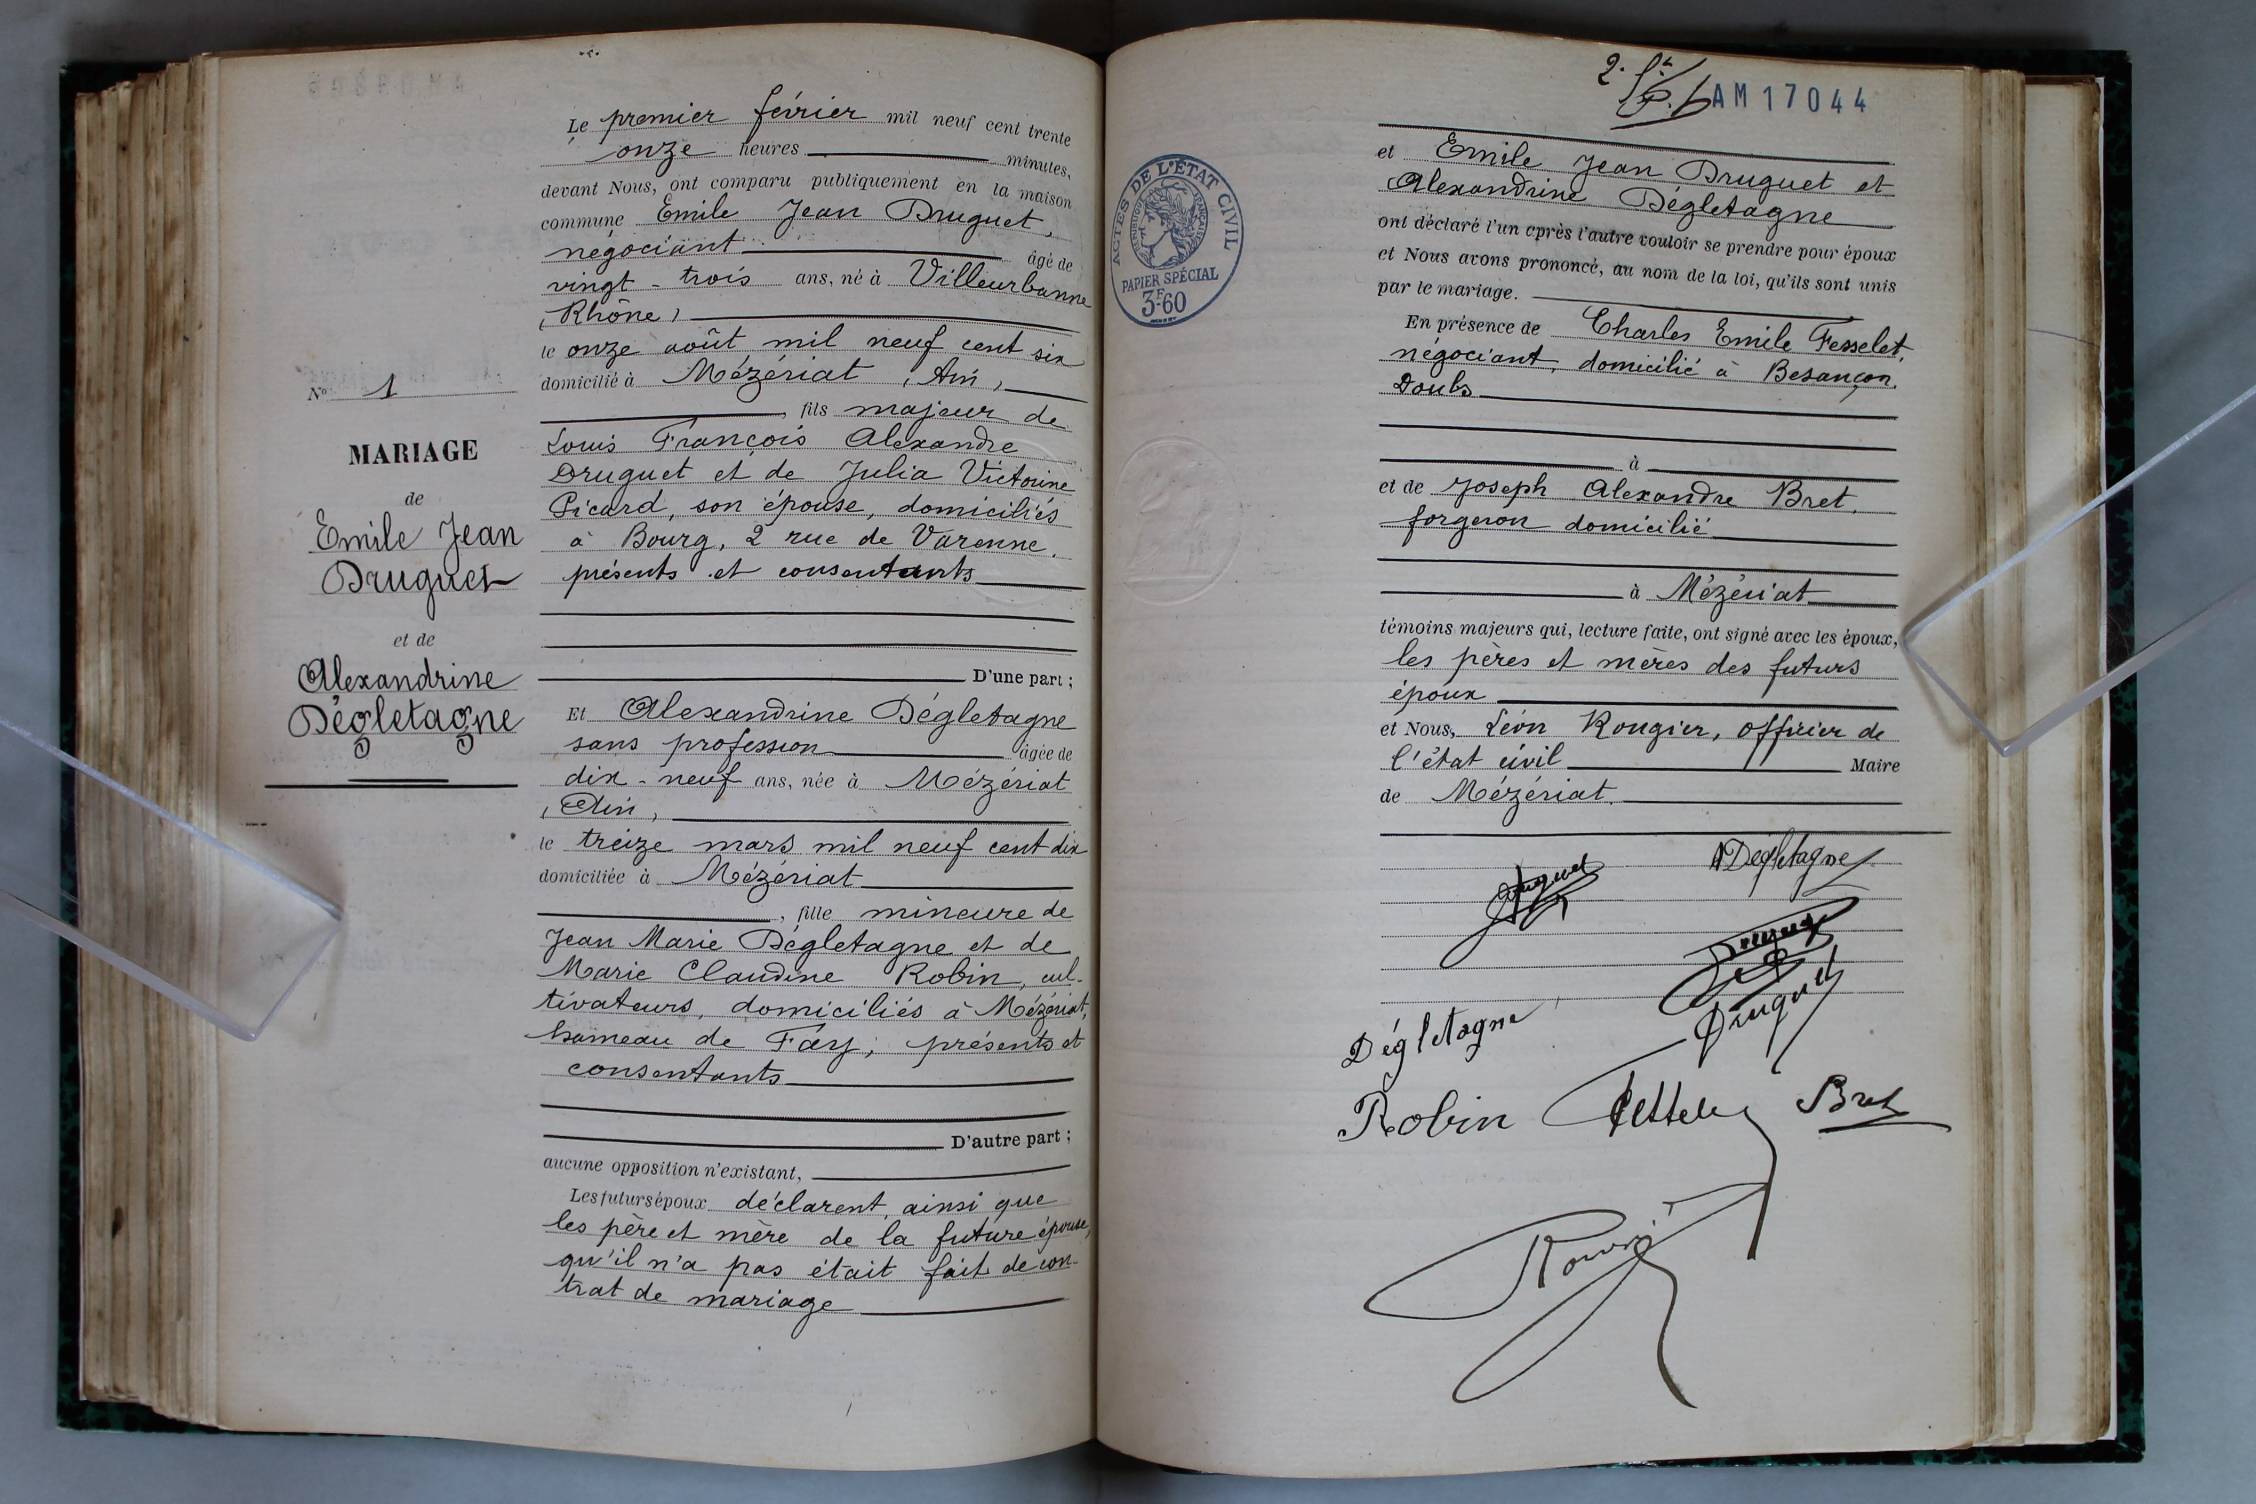 N° 1
MARIAGE
de
Emile Jean
Druguet
et de
Alexandrine
Dégletagne
Le premier février mil neuf cent trente
onze heures minutes,
devant Nous, ont comparu publiquement en la maison
commune Emile Jean Druguet,
négociant âgé de
vingt-trois ans, né à Villeurbanne
(Rhône)
le onze août mil neuf cent six
domicilié à Mézériat (Ain)
, fils majeur de
Louis François Alexandre
Druguet et de Julia Victorine
Picard, son épouse, domiciliés
à Bourg, 2 rue de Varenne.
présents et consentants
D'une part ;
Et Alexandrine Dégletagne
sans profession âgée de
dix-neuf ans, née à Mézériat
(Ain)
le treize mars mil neuf cent dix
domiciliée à Mézériat
, fille mineure de
Jean Marie Dégletagne et de
Marie Claudine Robin, cul-
tivateurs, domiciliés à Mézériat,
hameau de Fay ; présents et
consentants
D'autre part ;
aucune opposition n'existant,
Les futurs époux déclarent, ainsi que
les père et mère de la future épouse,
qu'il n'a pas était fait de con-
trat de mariage
ACTES DE L'ÉTAT CIVIL
RÉPUBLIQUE FRANÇAISE
PAPIER SPÉCIAL
3F.60
2.
AM17044
et Emile Jean Druguet et
Alexandrine Dégletagne
ont déclaré l'un après l'autre vouloir se prendre pour époux
et Nous avons prononcé, au nom de la loi, qu'ils sont unis
par le mariage.
En présence de Charles Emile Fesselet,
négociant, domicilié à Besançon,
Doubs
à
et de Joseph Alexandre Bret,
forgeron domicilié
à Mézériat
témoins majeurs qui, lecture faite, ont signé avec les époux,
les pères et mères des futurs
époux
et Nous, Léon Rougier, officier de
l'état civil Maire
de Mézériat.
Druguet
A Dégletagne
Druguet
Dégletagne
Robin
Bret